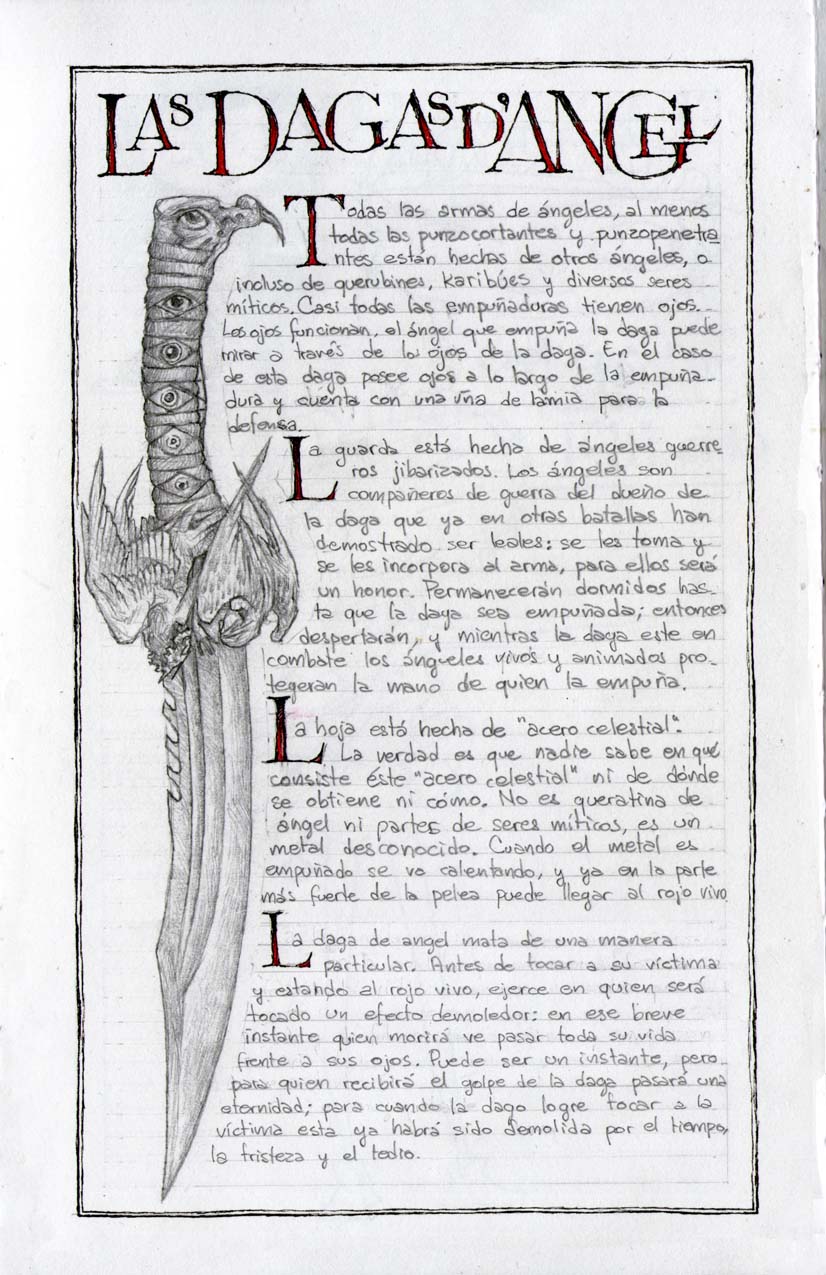 LAS DAGAS D'ANGEL
Todas las armas de ángeles, al menos
todas las punzocortantes y punzopenetra
ntes están hechas de otros ángeles, o
incluso de querubines, karibúes y diversos seres
míticos. Casi todas las empuñaduras tienen ojos.
Los ojos funcionan, el ángel que empuña la daga puede
mirar a través de los ojos de la daga. En el caso
de esta daga posee ojos a lo largo de la empuña-
dura y cuenta con una uña de lamia para la
defensa.
La guarda está hecha de ángeles guerre
ros jibarizados. Los ángeles son
compañeros de guerra del dueño de
la daga que ya en otras batallas han
demostrado ser leales: se les toma y
se les incorpora al arma, para ellos será
un honor. Permanecerán dormidos has-
ta que la daga sea empuñada; entonces
despertarán, y mientras la daga este en
combate los ángueles vivos y animados pro-
tegerán la mano de quien la empuña.
La hoja está hecha de "acero celestial".
La verdad es que nadie sabe en qué
consiste éste "acero celestial" ni de dónde
se obtiene ni cómo. No es queratina de
ángel ni partes de seres míticos, es un
metal desconocido. Cuando el metal es
empuñado se va calentando, y ya en la parte
más fuerte de la pelea puede llegar al rojo vivo.
La daga de angel mata de una manera
particular. Antes de tocar a su víctima
y estando al rojo vivo, ejerce en quien será
tocado un efecto demoledor: en ese breve
instante quien morirá ve pasar toda su vida
frente a sus ojos. Puede ser un instante, pero
para quien recibirá el golpe de la daga pasará una
eternidad; para cuando la dago logre tocar a la
víctima esta ya habrá sido demolida por el tiempo,
la tristeza y el tedio.